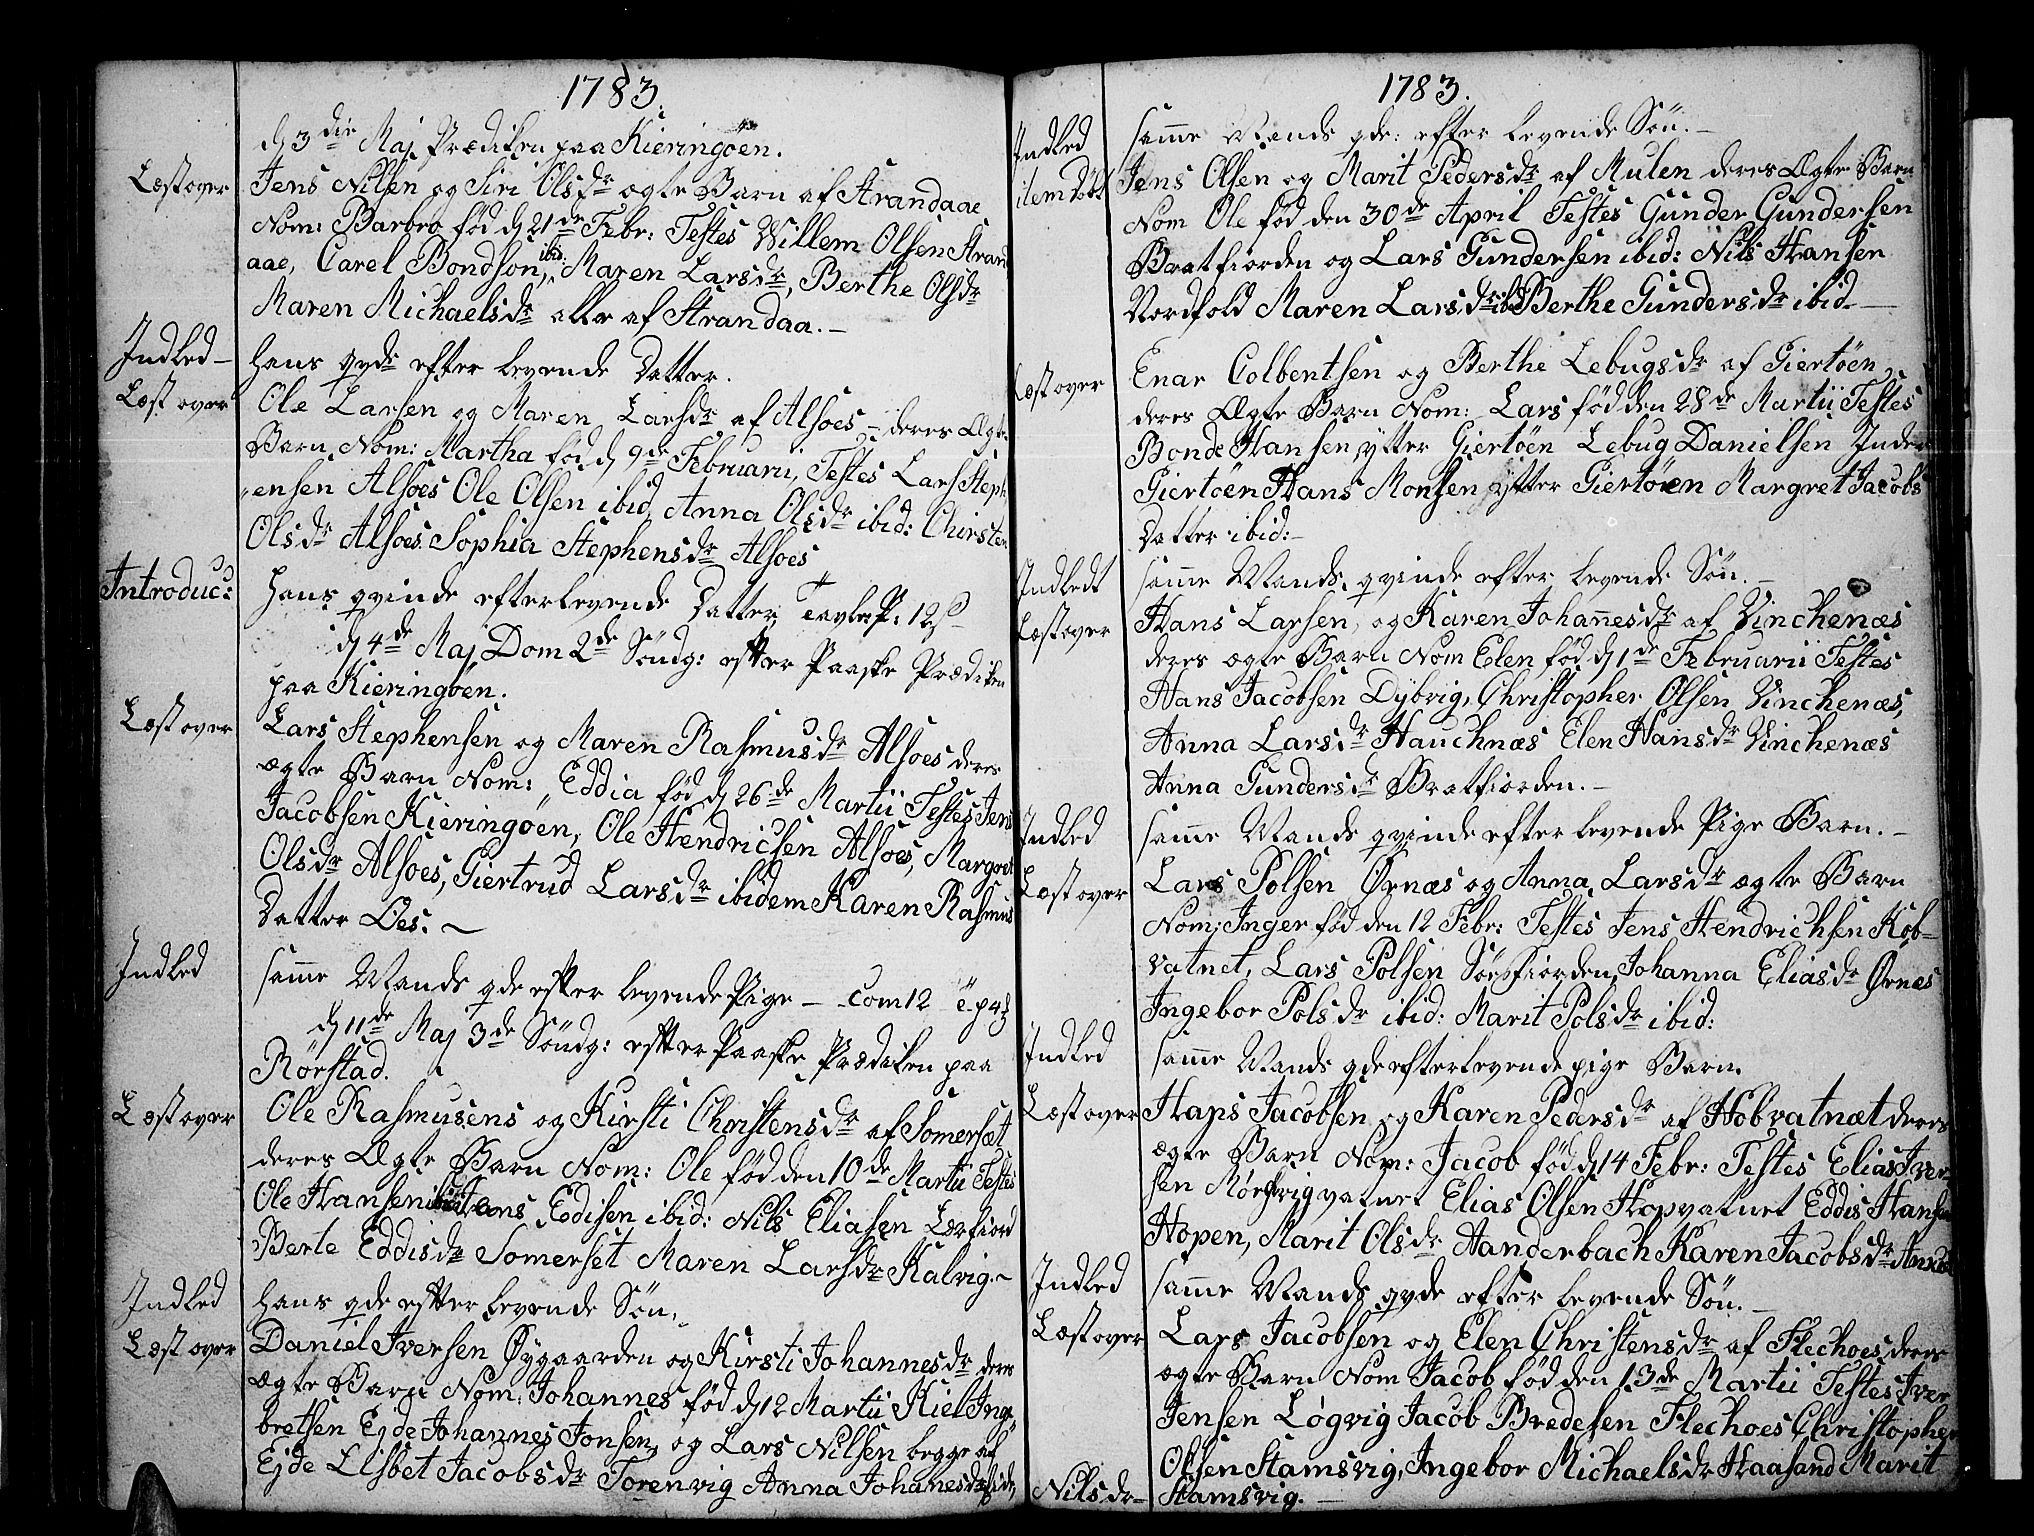 1783.
d 3die Maj Prædiken paa Kieringöen.
Læst over Jens Nilsen og Siri Olsdr ægte Barn af Strandaae
Nom: Barbro fød d 21de Febr: Testes Willem Olsen Strand
aae, Carel Bondson, ibid: Maren Larsdr, Berthe Olsdr
Maren Michaelsdr alle af Strandaa.—
Indled— hans qvde efter levende Datter.
Læst over Ole Larsen og Maren Larsdr af Alsoes – deres Ægte
Barn Nom: Martha fød d 9de Februarii, Testes Lars Steph
ensen Alsoes Ole Olsen ibid, Anna Olsdr ibid: Chirsten
Olsdr Alsoes Sophia Stephensdr Alsoes
Introduc: hans qvinde efterlevende Datter, Tavlep: 12ß
d 4de Maj Dom 2de Söndg: efter Paaske Prædiken
paa Kieringöen.
Læst over Lars Stephensen og Maren Rasmusdr Alsoes deres
ægte Barn Nom: Eddia fød d 26de Martii Testes Jens
Jacobsen Kieringöen, Ole Hendricsen Alsoes, Margret
Olsdr Alsoes, Giertrud Larsdr ibidem Karen Rasmus
Datter Oes.
Indled samme Mands qde efter levende Pige — Com 12
d 11de Maj 3de Söndg: efter Paaske Prædiken paa
Rörstad.
Læst over Ole Rasmusens og Kirsti Christensdr af Somerset
deres Ægte Barn Nom: Ole fød den 10de Martii Testes
Ole Hansen ibid Jens Edisen ibid: Nils Eliasen Lerfiord
Berte Eddisdr Somerset Maren Larsdr Kalvig.—
Indled hans qde efter levende Sön.
Læst over Daniel Iversen Øygaarden og Kirsti Johannesdr deres
ægte Barn Nom: Johannes fød d 12 Martii Kiel Inge
bretsen Ejde Johannes Jonsen, og Lars Nilsen begge af
Ejde Lisbet Jacobsdr Torenvig Anna Johanesdr
1783.
Indled samme Mands qde: efter levende Sön.—
item Döbt Jens Olsen og Marit Pedersdr af Mulen deres Ægte Barn
Nom Ole fød den 30de April Testes Gunder Gundersen
Bratfiorden og Lars Gundersen ibid: Nils Hansen
Nordfold Maren Larsdr ibid Berthe Gundersdr ibid—
Læst over Enar Colbentsen og Berthe Lebugsdr af Giertöen
deres Ægte Barn Nom: Lars fød den 28de Martii Testes
Bonde Hansen ytter Giertöen Lebug Danielsen Inder
Giertöen Hans Monsen ÿtter Giertöen Margret Jacobs
Datter ibid:—
Indledt samme Mands qvinde efter levende Sön.—
Læst over Hans Larsen, og Karen Johanesdr af Vinchenæs
deres ægte Barn Nom Elen fød d 1de Februarii Testes
Hans Jacobsen Dÿbvig, Christopher Olsen Vinchenæs,
Anna Larsdr Hauchnæs Elen Hansdr Vinchenæs
Anna Gundersdr Bratfiorden.—
Indled samme Mands qvinde efter levende Pige Barn.—
Læst over Lars Polsen Ørnæs og Anna Larsdr ægte Barn
Nom: Inger fød den 12 Febr: Testes Jens Hendrichsen Hob-
vatnet, Lars Polsen Sörfiorden, Johanna Eliasdr Ørnæs
Ingebor Polsdr ibid: Marit Polsdr ibid:
Indled samme Mands qde efterlevende pige Barn.
Læst over Hans Jacobsen og Karen Pedersdr af Hobvatnæt deres
ægte Barn Nom: Jacob fød d 14 Febr: Testes Elias Iver-
sen Mörchvigvatnet Elias Olsen Hopvatnet Eddis Hansen
Hopen, Marit Olsdr Aanderbach Karen Jacobsdr
Indled samme Mands qvde efter levende Sön.—
Læst over Lars Jacobsen og Elen Christensdr af Flechoes deres
ægte Barn Nom Jacob fød den 13de Martii Testes Iver
Jensen Løgvig Jacob Bredesen Flechoes Christopher
Olsen Stamsvig, Ingebor Michaelsdr Haasand Marit
Nilsdr— Stamsvig.—